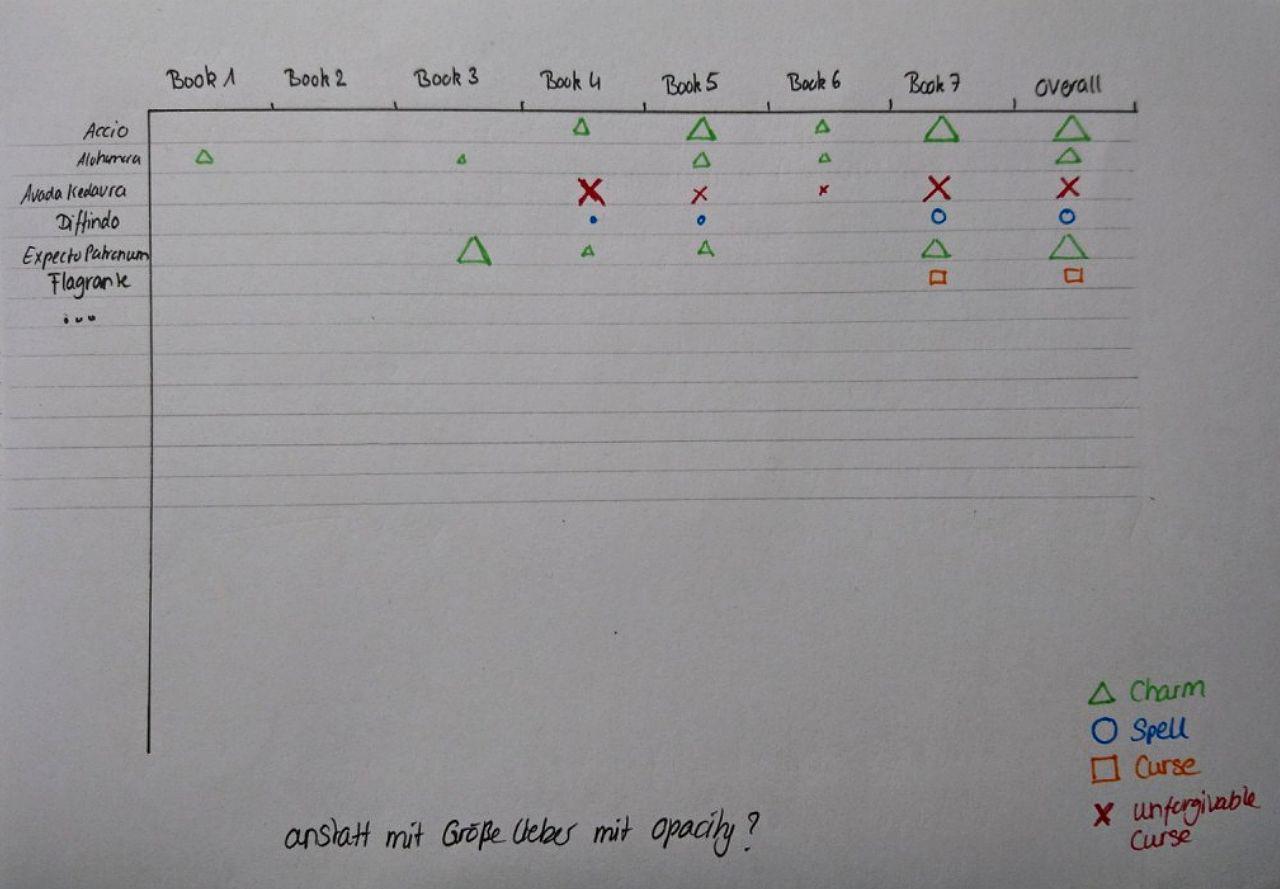 Book 1 Book 2 Book 3 Book 4 Book 5 Book 6 Book 7 overall
Accio
Alohomora
Avada Kedavra
Diffindo
Expecto Patronum
Flagrante
...
Charm
Spell
Curse
unforgivable
Curse
anstatt mit Größe lieber mit opacity?